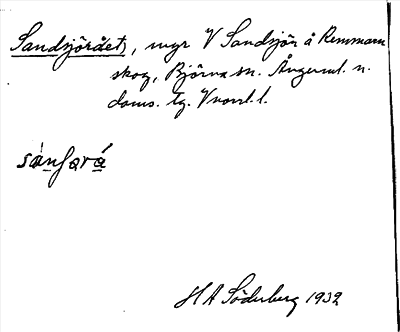 Sandsjörået, myr V Sandsjön å Remmarn
skog, Björna sn. Ångerml. n.
doms. tg. Vnorrl. l.
H A Söderberg 1932